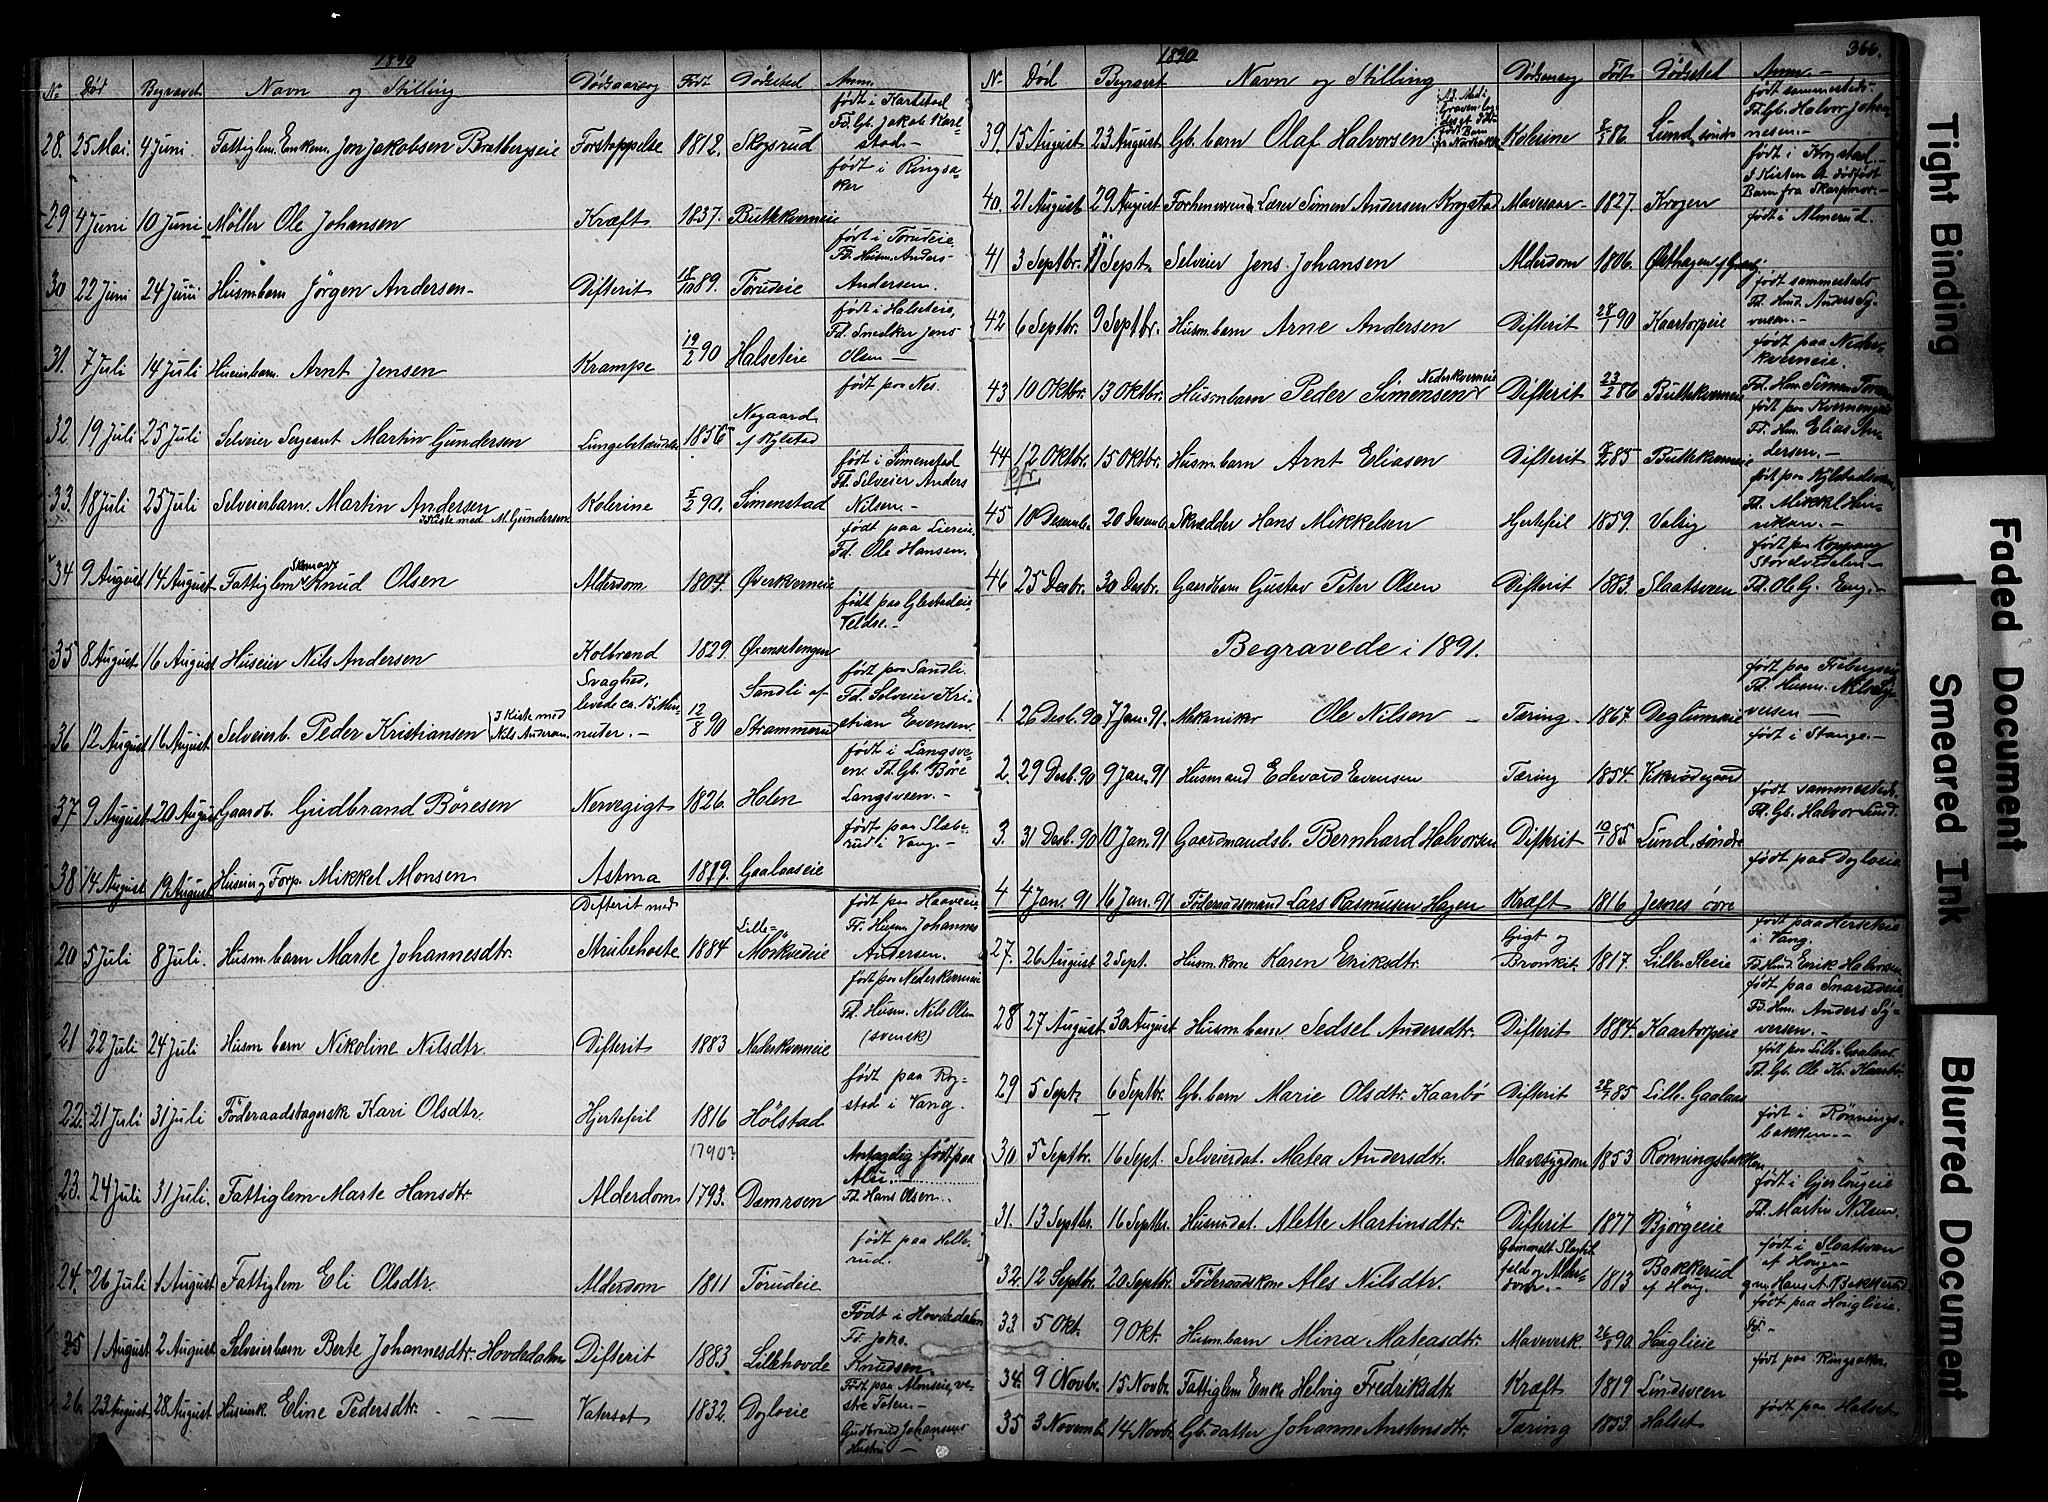 1890
No Død Begravet Navn og Stilling Dødsaarsag Født Dødssted Anm.
28. 25 Mai. 4 Juni Fattiglem. Enkem. Jon Jakobsen Bratbergseie Forstoppelse 1812. Skysrud født i Karlstad Fd. Gb. Jakob Karlstad.-
29 4 Juni 10 Juni Møller Ole Johansen Kræft 1837. Buttekverneie født i Ringsaker
30 22 Juni 24 Juni Husmbarn Jørgen Andersen Difterit 18/10 89. Torudeie født i Torudeie. Fd. Husm. Anders Andersen.
31. 7 Juli 14 Juli Husmbarn. Arnt Jensen Krampe 19/2 90 Halseteie født i Halseteie, Fd. Snedker Jens Olsen
32 19 Juli 25 Juli Selveier Sergeant Martin Gundersen 1856 Nygaard af Kylstad født paa Nes.
33. 18 Juli 25 Juli Selveierbarn. Martin Andersen I Kiste med M. Gundersen Kolerine 5/2 90. Simenstad født i Simenstad Fd. Selveier Anders Nilsen.-
34 9 August 14 August Fattiglem Knud Olsen Alderdom 1804. Øverkverneie født paa Liereie, Fd. Ole Hansen.
35 8 August 16 August Huseier Nils Andersen Kolbrand 1829. Øxensetengen født paa Veldre.-
36 12 August 16 August Selveierb. Peder Kristiansen I Kiste med Nils Andersen Svaghed, levede ca. 15 Minuter.- 12/8 90 Sandli af Strammerud født paa Sandli Fd. Selveier Kristian Evensen.
37 9 August 20 August Gaardb. Gudbrand Børesen Nervegigt 1826. Holen født i Langsveen. Fd. Gb. Børe Langsveen.-
38 14 August 19 August Huseier og Forp. Mikkel Monsen Astma 1819. Gaalaaseie født paa Slaberud i Vang.-
20 5 Juli 8 Juli. Husm. barn Marte Johannesdtr. Difterit med Strubehoste 1884 Lille-Morkvedeie født paa Haaveeie Fd. Husm. Johannes Andersen.
21 22 Juli 24 Juli Husm barn Nikoline Nilsdtr. Difterit 1883 Nederkverneie født paa Nederkverneie Fd. Husm. Nils Olsen (svensk)
22. 21 Juli 31 Juli Föderaadstagersk Kari Olsdtr. Hjertefeil 1816 Hølstad født paa Rogstad i Vang.
23. 24 Juli 31 Juli. Fattiglem Marte Hansdtr. Alderdom 1790? 1793. Damrsen Antagelig født paa Fd. Hans Olsen.
24. 26 Juli 1 August Fattiglem Eli Olsdtr. Alderdom 1811 Torudeie født paa Hellerud.
25 1 August 2 August Selveierbarn Berte Johannesdtr. Hovdedalen Difterit 1883 Lillehovde Født i Hovdedalen Fd. Johs. Knudsen.
26. 23 August 28 August Huseiersk. Eline Pedersdtr. Vatersot 1832. Dogloeie Født paa vestre Toten.- Gudbrand Johansens Hustru
366.
1890
No Død Begravet Navn og Stilling Dødsaarsag Født Dødssted Anm.-
39. 15 August 23 August Gb. barn Olaf Halvorsen Kolerine 86. Lund, søndre født sammesteds. Fd. Gb. Halvor Johannesen.-
40. 21 August 29 August Forhenværende Lærer Simen Andersen Krogstad Mavesaar 1827. Krogen født i Krogstad.- I Kisten et dødfødt Barn fra Skarpsnor.-
41 3 Septbr. 11 Sept. Selveier Jens Johansen Alderdom 1806. født i Almerud.
42 6 Septbr. 9 Septbr. Husm.barn Arne Andersen Difterit 28/1 90 Kaartorpeie født sammesteds Fd. Hmd. Anders Syversen.-
43 10 Oktbr. 13 Oktbr. Husm.barn Peder Simensen Nederkverneie Difterit 23/2 86 Buttekverneie født paa Nederkverneie. Fd. Hm. Simen
44 12 Oktbr. 15 Oktbr. Husm.barn Arnt Eliasen Difterit 85 Buttekverneie født paa Kverneneie Fd. Hm. Elias Andersen.-
45 10 Desemb. 20 Desemb. Skrædder Hans Mikkelsen Hjertefeil 1859. Valsig født paa Kylstadsveen Fd. Mikkel Henriksen.-
46 25 Desbr. 30 Desbr. Gaardbarn Gustav Peter Olsen Difterit 1883. Slaatsveen født paa Koppang Storelvedalen- Fd. Ole G. Eng.-
Begravede i 1891.
1. 26 Desb. 90 7 Jan. 91. Mekaniker Ole Nilsen Tæring. 1867. Deglumeie født paa Fribergseie Fd. Husm. Nils Syversen
2. 29 Desb. 90 9 Jan. 91 Husmand Edevard Evensen Tæring 1854. født i Stange.-
3. 31 Desb. 90 10 Jan. 91 Gaardmandsb. Bernhard Halvorsen Difterit 10/1 85. Lund, søndre født sammesteds. Fd. Gb. Halvor Lund.
4 4 Jan. 91 16 Jan. 91 Föderaadsmand Lars Rasmusen Hagen Kræft 1816 Jesnes øvre født paa Dogloeie
27. 26 August 2 Sept. Husm. kone Karen Eriksdtr. Gigt og Bronkit. 1817. Lille Skeie født paa Herseteie i Vang. Fd. Hmd. Erik Halvorsen
28 27 August 30 August Husm.barn Sedsel Andersdtr. Difterit 1884. Kaartorpeie født paa Snarudeie Fd. Hm. Anders Syversen.-
29 5 Sept. 6 Septbr. Gb. barn Marie Olsdtr. Kaarbø Difterit 85 Lille Gaalaas født paa Lille-Gaalaas. Fd. Gb. Ole Kr. Kaarbø
30 5 Septbr. 16 Sept. Selveierdat. Matea Andersdtr. Mavesygdom 1853 Rønningsbakken født i Rønningsbakken.-
31. 13 Septbr. 16 Septbr. Husmdat. Alette Martinsdtr. Difterit 1877 Bjørgeeie født i Gjerlougeie Fd. Martin Nilsen
32. 12 Septbr. 20 Septbr. Föderaadskone Ales Nilsdtr. Gammelt Slagtilfelde og Alderdom.- 1813 Bakkerud af Houg. født i Slaatsveen af Houg. gm. Hans A. Bakkerud.
33. 5 Okt. 9 Okt. Husm.barn Mina Mateasdtr. Maveverk 90. Houglieie født paa Houglieie.
34. 9 Novbr. 15 Novbr. Fattiglem Enke Helvig Fredriksdtr. Kræft 1819 Lundsveen født paa Ringsaker.
35 3 Novemb. 14 Novbr. Gb. datter Johanne Anstensdtr. Tæring 1853. Halset født paa Halset
Tight Binding
Faded Document
Smeared Ink
Blurred Document